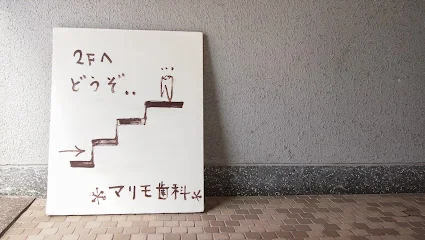 2Fへ
どうぞ..
マリモ歯科